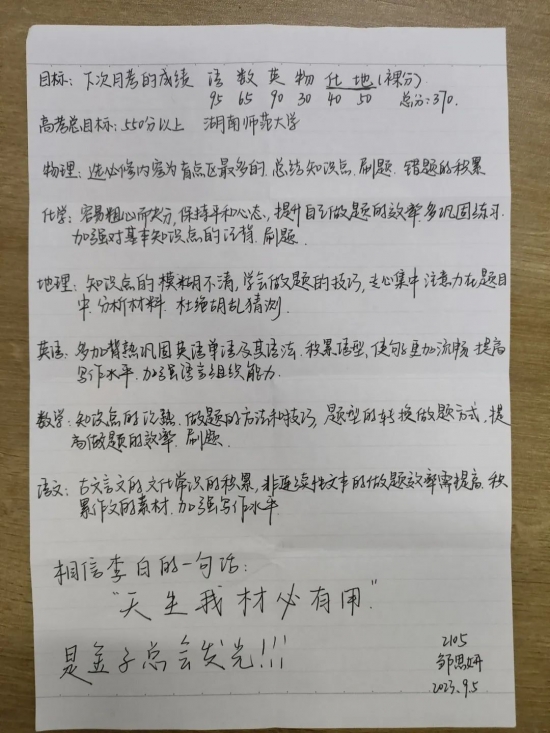 目标：下次月考的成绩 语 数 英 物 化 地(裸分)
95 65 90 30 40 50 总分：370.
高考总目标：550分以上 湖南师范大学
物理：选必修内容为有点飞最多的.总结知识点.刷题.错题的积累
化学：容易粗心而失分,保持平和心态,提升自己做题的效率.多巩固练习.
加强对基本知识点的.刷题.
地理：知识点的模糊不清,学会做题的技巧,专心集中注意力在题目
中.分析材料.杜绝胡乱猜测.
英语：多加背熟巩固英语单语及其语法.积累语型,使句子更加流畅.提高
写作水平.加强语言组织能力.
数学：知识点的.做题的方法和技巧,题型的转换做题方式,提
高做题的效率.刷题.
语文：古文言文的文化常识的积累,非连续性文本的做题效率需提高.积
累作文的素材.加强写作水平.
相信李白的一句话：
“天生我材必有用.”
是金子总会发光!!!
2105
邹思妍
2023.9.5